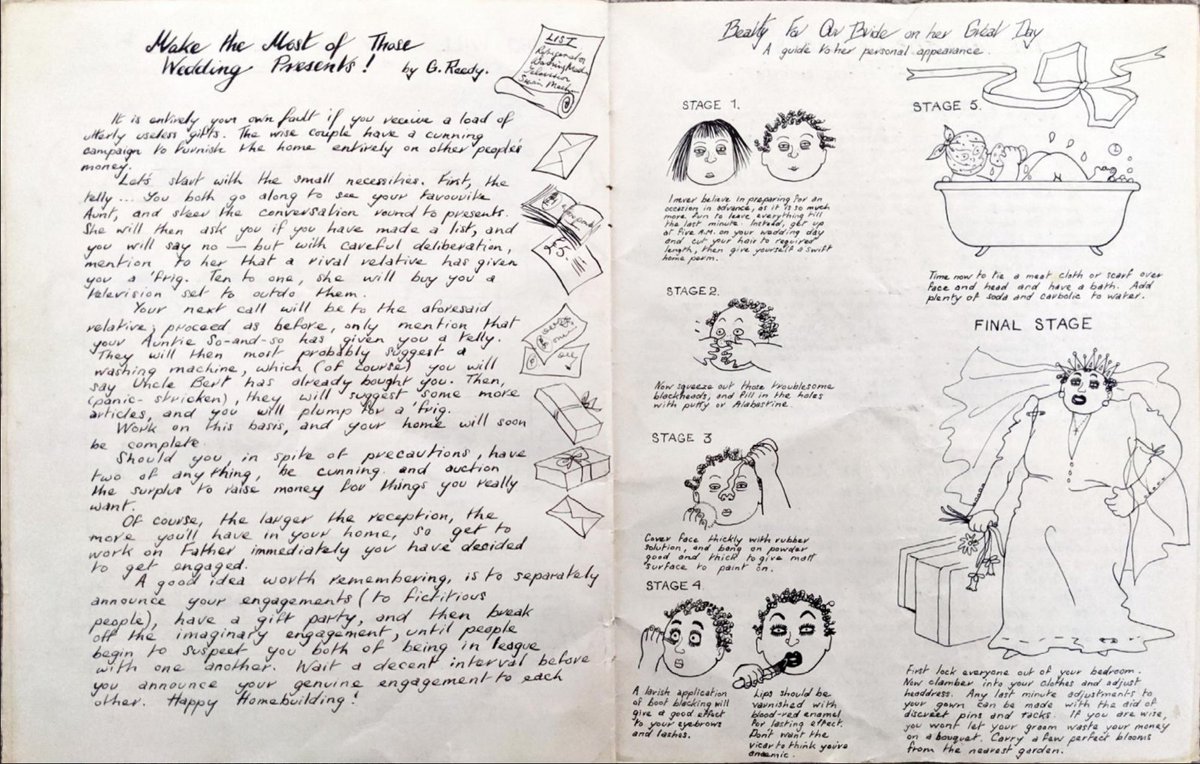 Make the Most of Those
Wedding Presents! by G. Reedy.
LIST
Refrigerator
Washing Machine
Television
It is entirely your own fault if you receive a load of
utterly useless gifts. The wise couple have a cunning
campaign to furnish the home entirely on other people's
money.
Let's start with the small necessities. First, the
telly... You both go along to see your favourite
Aunt, and steer the conversation round to presents.
She will then ask you if you have made a list, and
you will say no — but with careful deliberation,
mention to her that a rival relative has given
you a 'frig. Ten to one, she will buy you a
television set to outdo them.
Your next call will be to the aforesaid
relative, proceed as before, only mention that
your Auntie So-and-so has given you a telly.
They will then most probably suggest a
washing machine, which (of course) you will
say Uncle Bert has already bought you. Then,
(panic-stricken), they will suggest some more
articles, and you will plump for a 'frig.
Work on this basis, and your home will soon
be complete
Should you, in spite of precautions, have
two of anything, be cunning and auction
the surplus to raise money for things you really
want.
Of course, the larger the reception, the
more you'll have in your home, so get to
work on Father immediately you have decided
to get engaged.
A good idea worth remembering, is to separately
announce your engagements (to fictitious
people), have a gift party, and then break
off the imaginary engagement, until people
begin to suspect you both of being in league
with one another. Wait a decent interval before
you announce your genuine engagement to each
other. Happy Homebuilding!
£5.
Beauty For Our Bride on her Great Day
A guide to her personal appearance.
STAGE 1.
I never believe in preparing for an
occasion in advance, as it is so much
more fun to leave everything till
the last minute. Instead, get up
at five A.M. on your wedding day
and cut your hair to required
length, then give yourself a swift
home perm.
STAGE 2.
Now squeeze out those troublesome
blackheads, and fill in the holes
with putty or Alabastine.
STAGE 3
Cover face thickly with rubber
solution, and bang on powder
good and thick to give matt
surface to paint on.
STAGE 4
A lavish application
of boot blacking will
give a good effect
to your eyebrows
and lashes.
Lips should be
varnished with
blood-red enamel
for lasting effect.
Don't want the
vicar to think you're
anaemic.
STAGE 5.
Time now to tie a meat cloth or scarf over
face and head and have a bath. Add
plenty of soda and carbolic to water.
FINAL STAGE
First lock everyone out of your bedroom.
Now clamber into your clothes and adjust
headdress. Any last minute adjustments to
your gown can be made with the aid of
discreet pins and tacks. If you are wise,
you wont let your groom waste your money
on a bouquet. Carry a few perfect blooms
from the nearest garden.